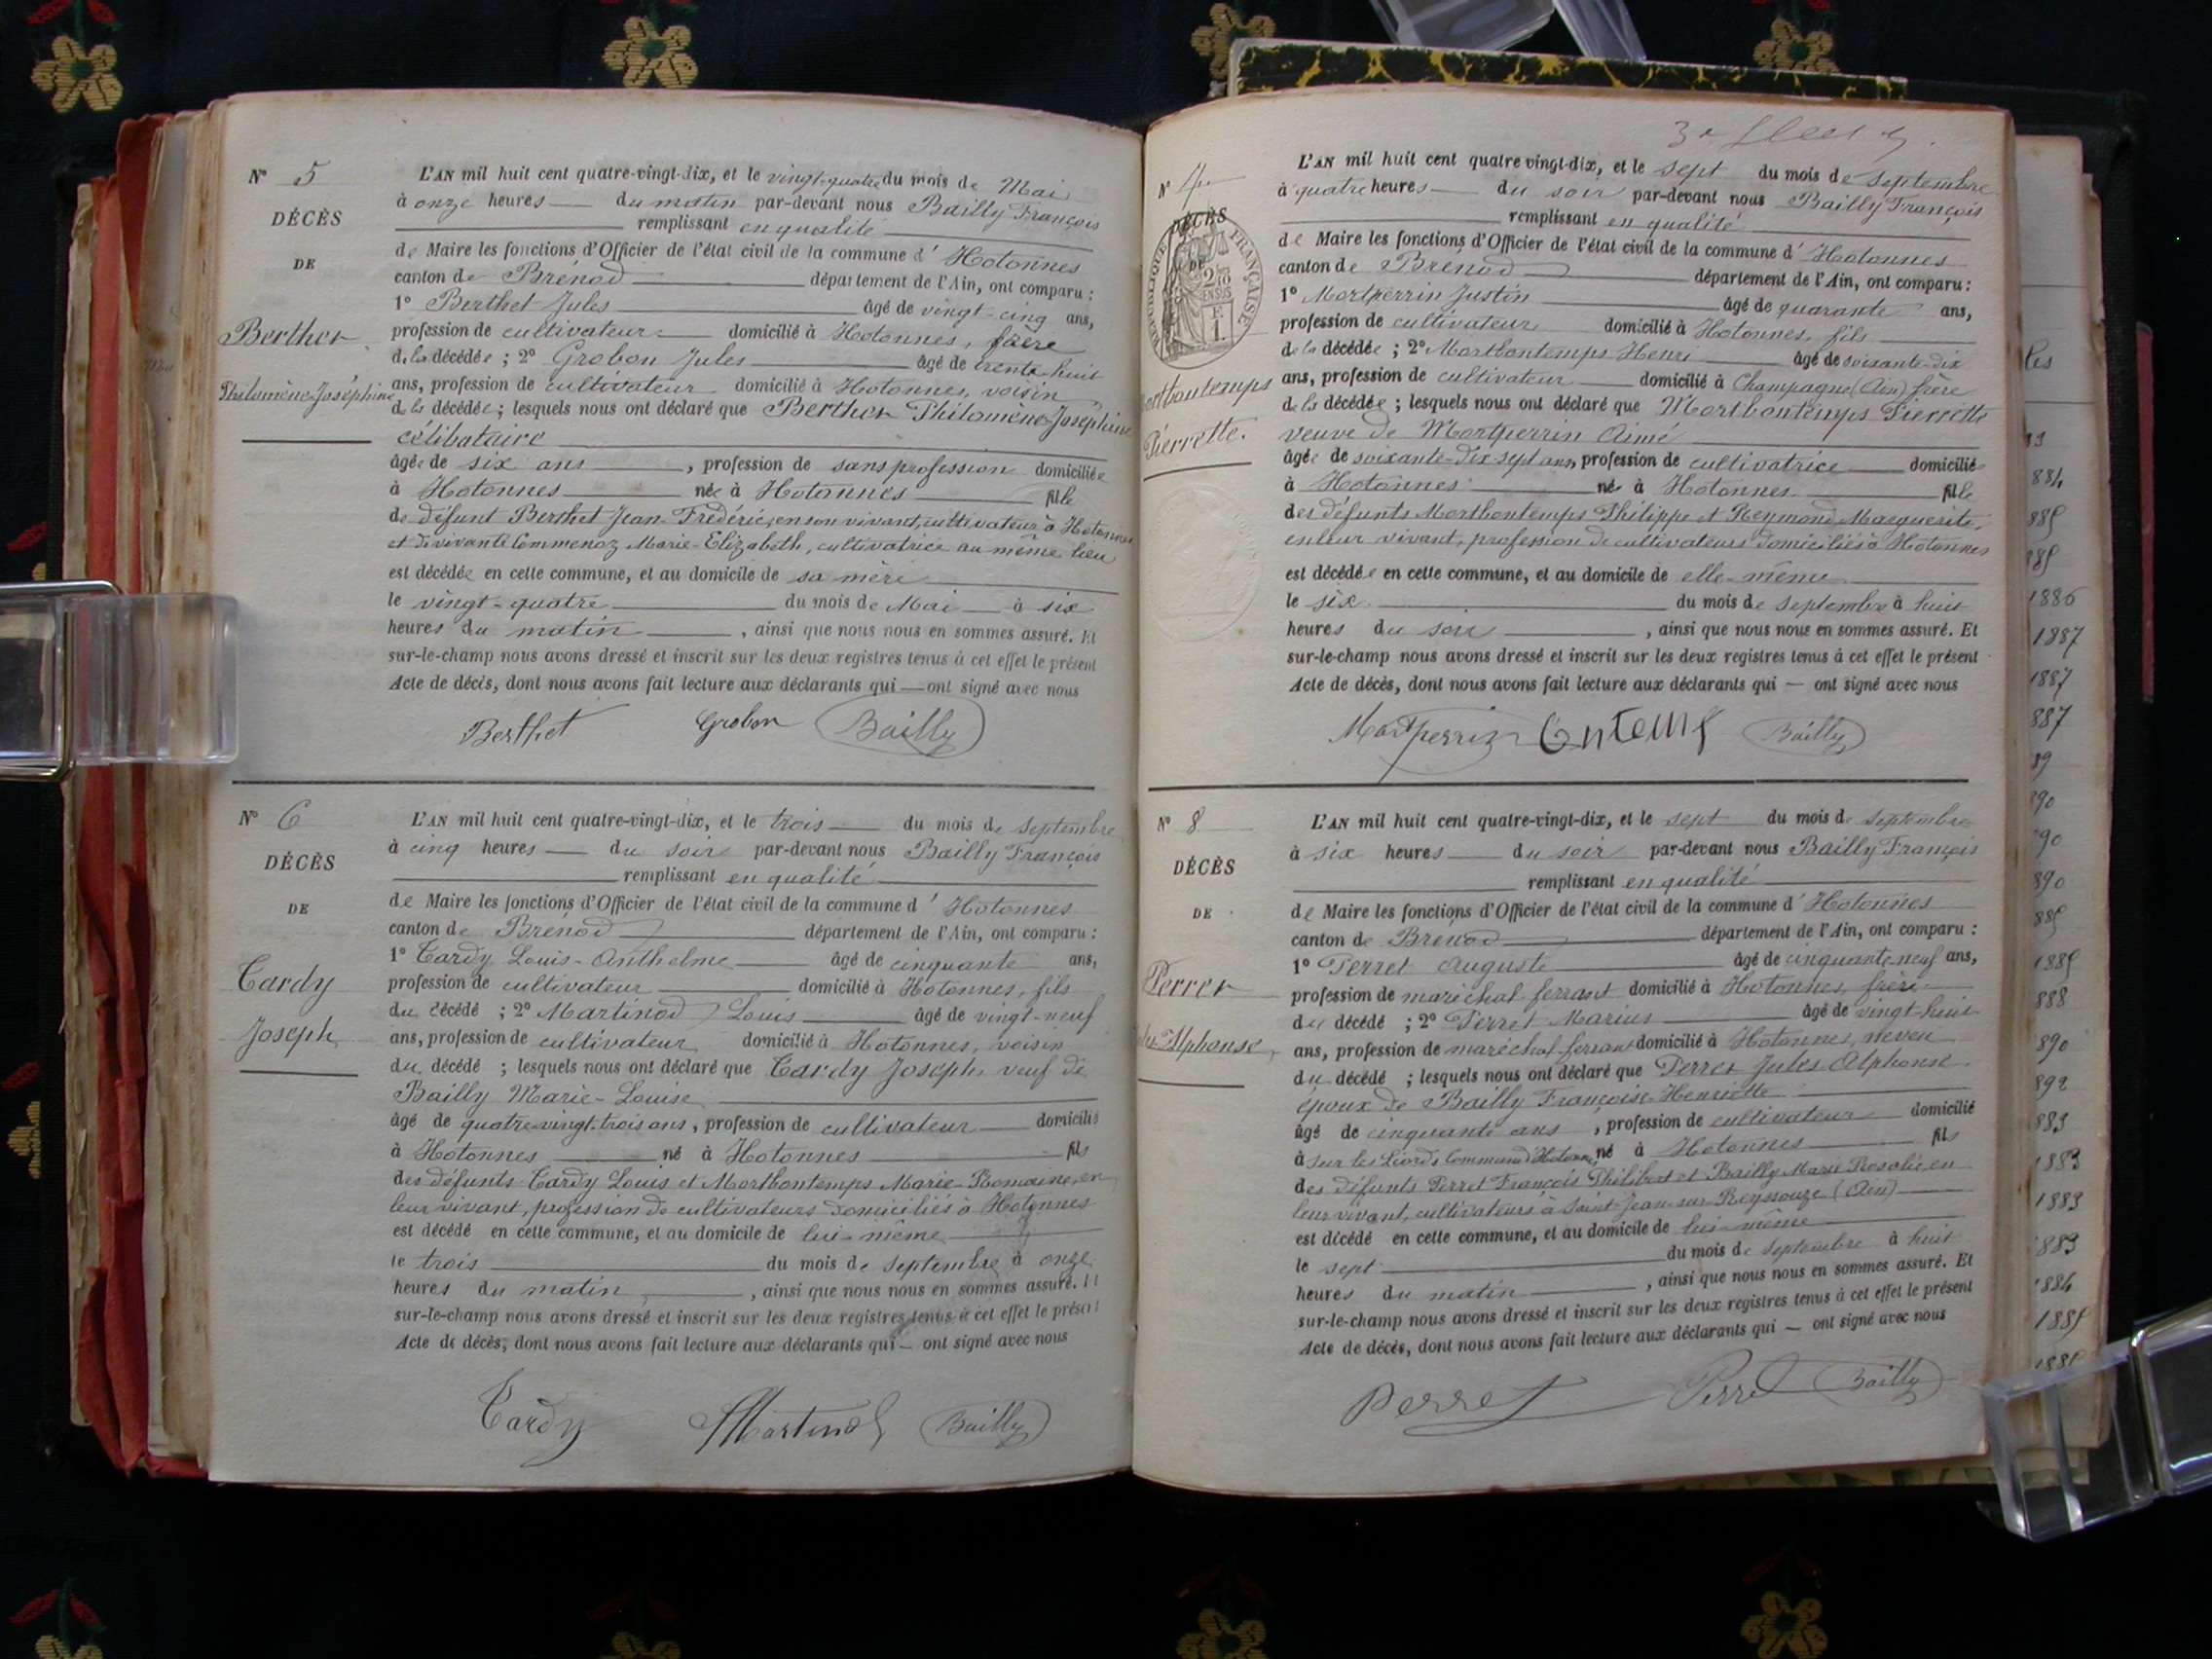 N° 5
DÉCÈS
DE
Berthet
Philomène-Joséphine
L'AN mil huit cent quatre-vingt-dix, et le vingt-quatre du mois de Mai
à onze heures du matin par-devant nous Bailly François
remplissant en qualité
de Maire les fonctions d'Officier de l'état civil de la commune d'Hotonnes
canton de Brénod département de l'Ain, ont comparu :
1° Berthet Jules âgé de vingt-cinq ans,
profession de cultivateur domicilié à Hotonnes, frère
de la décédée ; 2° Grobon Jules âgé de trente-huit
ans, profession de cultivateur domicilié à Hotonnes, voisin
de la décédée ; lesquels nous ont déclaré que Berthet Philomène-Joséphine
célibataire
âgée de six ans , profession de sans profession domiciliée
à Hotonnes née à Hotonnes fille
de défunt Berthet Jean-Frédéric, en son vivant, cultivateur à Hotonnes
et de vivante Commenoz Marie-Elizabeth, cultivatrice au même lieu
est décédée en cette commune, et au domicile de sa mère
le vingt-quatre du mois de Mai à six
heures du matin , ainsi que nous nous en sommes assuré. Et
sur-le-champ nous avons dressé et inscrit sur les deux registres tenus à cet effet le présent
Acte de décès, dont nous avons fait lecture aux déclarants qui ont signé avec nous
Berthet Grobon Bailly
N° 6
DÉCÈS
DE
Tardy
Joseph
L'AN mil huit cent quatre-vingt-dix, et le trois du mois de Septembre
à cinq heures du soir par-devant nous Bailly François
remplissant en qualité
de Maire les fonctions d'Officier de l'état civil de la commune d'Hotonnes
canton de Brénod département de l'Ain, ont comparu :
1° Tardy Louis-Anthelme âgé de cinquante ans,
profession de cultivateur domicilié à Hotonnes, fils
du décédé ; 2° Martinod Louis âgé de vingt-neuf
ans, profession de cultivateur domicilié à Hotonnes, voisin
du décédé ; lesquels nous ont déclaré que Tardy Joseph, veuf de
Bailly Marie-Louise
âgé de quatre-vingt-trois ans, profession de cultivateur domicilié
à Hotonnes né à Hotonnes fils
des défunts Tardy Louis et Mortbontemps Marie-Romaine, en
leur vivant, profession de cultivateurs domiciliés à Hotonnes
est décédé en cette commune, et au domicile de lui-même
le trois du mois de Septembre à onze
heures du matin , ainsi que nous nous en sommes assuré. Et
sur-le-champ nous avons dressé et inscrit sur les deux registres tenus à cet effet le présent
Acte de décès, dont nous avons fait lecture aux déclarants qui — ont signé avec nous
Tardy Martinod Bailly
N° 7
DÉCÈS
DE
RÉPUBLIQUE FRANÇAISE
Mortbontemps
Pierrette.
L'AN mil huit cent quatre vingt-dix, et le sept du mois de Septembre
à quatre heures du soir par-devant nous Bailly François
remplissant en qualité
de Maire les fonctions d'Officier de l'état civil de la commune d'Hotonnes
canton de Brénod département de l'Ain, ont comparu :
1° Mortperrin Justin âgé de quarante ans,
profession de cultivateur domicilié à Hotonnes, fils
de la décédée ; 2° Mortbontemps Henri âgé de soixante-dix
ans, profession de cultivateur domicilié à Champagne (Ain) frère
de la décédée ; lesquels nous ont déclaré que Mortbontemps Pierrette
veuve de Mortperrin Aimé
âgée de soixante-dix-sept ans, profession de cultivatrice domiciliée
à Hotonnes née à Hotonnes fille
des défunts Mortbontemps Philippe et Reymond Marguerite,
en leur vivant, profession de cultivateurs domiciliés à Hotonnes
est décédée en cette commune, et au domicile de elle-même
le six du mois de Septembre à huit
heures du soir , ainsi que nous nous en sommes assuré. Et
sur-le-champ nous avons dressé et inscrit sur les deux registres tenus à cet effet le présent
Acte de décès, dont nous avons fait lecture aux déclarants qui — ont signé avec nous
Mortperrin Bailly
N° 8
DÉCÈS
DE
Perret
Alphonse
L'AN mil huit cent quatre-vingt-dix, et le sept du mois de Septembre
à six heures du soir par-devant nous Bailly François
remplissant en qualité
de Maire les fonctions d'Officier de l'état civil de la commune d'Hotonnes
canton de Brénod département de l'Ain, ont comparu :
1° Perret Auguste âgé de cinquante-neuf ans,
profession de maréchal ferrant domicilié à Hotonnes, frère
du décédé ; 2° Perret Marius âgé de vingt-huit
ans, profession de maréchal ferrant domicilié à Hotonnes, neveu
du décédé ; lesquels nous ont déclaré que Perret Jules Alphonse
époux de Bailly Françoise-Henriette
âgé de cinquante ans , profession de cultivateur domicilié
à sur les Liords Commune d'Hotonnes, né à Hotonnes fils
des défunts Perret François Philibert et Bailly Marie Rosalie, en
leur vivant, cultivateurs à Saint-Jean-sur Reyssouze (Ain)
est décédé en cette commune, et au domicile de lui-même
le sept du mois de Septembre à huit
heures du matin , ainsi que nous nous en sommes assuré. Et
sur-le-champ nous avons dressé et inscrit sur les deux registres tenus à cet effet le présent
Acte de décès, dont nous avons fait lecture aux déclarants qui — ont signé avec nous
Perret Perret Bailly
1886
1887
1887
887
89
90
90
890
885
1885
888
890
892
883
1883
1883
883
1884
1885